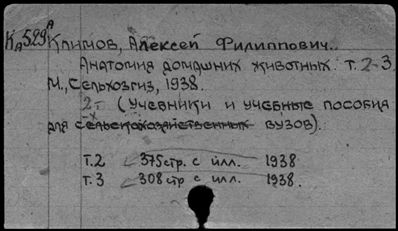 Ка529а Климов, Алексей Филиппович.
Анатомия домашних животных. т.2-3.
М., Сельхозгиз, 1938.
2т (Учебники и учебные пособия
для сельскохозяйственных вузов).
т.2 375 стр. с илл. 1938
т.3 308 стр с илл. 1938.